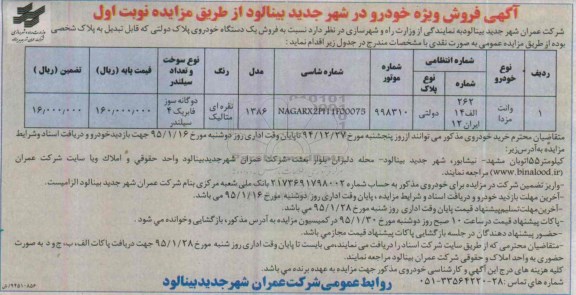 آگهی فروش ویژه خودرو در شهر جدید بینالود از طریق مزایده نوبت اول
شرکت عمران شهر جدید بینالودبه نمایندگی از وزارت راه و شهرسازی در نظر دارد نسبت به فروش یک دستگاه خودروی پلاک دولتی که قابل تبدیل به پلاک شخصی
بوده از طریق مزایده عمومی به صورت نقدی با مشخصات مندرج در جدول زیر اقدام نماید:
ردیف | نوع خودرو | شماره انتظامی | شماره | نوع پلاک | شماره موتور | شماره شاسی | مدل | رنگ | نوع سوخت و تعداد سیلندر | قیمت پایه (ریال) | تضمین (ریال)
۱ | وانت مزدا | ۲۶۲ الف۱۴ ایران ۱۲ | دولتی | ۹۹۸۳۱۰ | NAGARX2H111F00075 | ۱۳۸۶ | نقره ای متالیک | دوگانه سوز فابریک ۴ سیلندر | ۱۶۰/۰۰۰/۰۰۰ | ۱۶/۰۰۰/۰۰۰
متقاضیان محترم خرید خودروی مذکور می توانند از روز پنجشنبه مورخ ۹۴/۱۲/۲۷ تا پایان وقت اداری روز دوشنبه مورخ ۹۵/۱/۱۶ جهت بازدیدخودرو و دریافت اسناد وشرایط
مزایده به‌آدرس‌زیر:
کیلومتر۵۵اتوبان مشهد- نیشابور« شهر جدید بینالود- محله دلبران- بلوار بعثت-شرکت عمران شهرجدیدبینالود واحد حقوقی و املاک ویا سایت شرکت عمران
(www.binalood.ir) مراجعه نمایند.
-واریز تضمین شرکت در مزایده برای خودروی مذکور به حساب شماره ۲۱۷۳۶۹۱۷۹۸۰۰۲ بانک ملی شعبه مرکزی بنام شرکت عمران شهر جدید بینالود الزامیست.
-آخرین مهلت بازدید خودرو و دریافت اسناد و شرایط مزایده ، پایان وقت اداری روز دوشنبه مورخ ۹۵/۱/۱۶ می باشد.
-آخرین‌مهلت‌تسلیم‌پیشنهاد قیمت پایان وقت اداری روز شنبه مورخ ۹۵/۱/۲۸ می باشد.
-پاکات پیشنهاد قیمت در ساعت ۱۰ صبح روز دوشنبه مورخ ۹۵/۱/۳۰ در کمیسیون مزایده به آدرس مذکور، بازگشایی و خوانده می شود .
-حضور پیشنهاد دهندگان در جلسه بازگشایی پاکات پیشنهاد قیمت مجاز می باشد.
-متقاضیان محترمی که از طریق سایت شرکت اسناد را دریافت می نمایند،می بایست تا پایان وقت اداری روز شنبه مورخ ۹۵/۱/۲۸ جهت دریافت پاکات الف، ب، ج و د به صورت
حضوری به واحد املاک و حقوقی شرکت عمران بینالود مراجعه نمایند.
کلیه هزینه های درج این آگهی و کارشناسی خودروی مذکور جهت مزایده به عهده برنده می باشد.
شماره تماس: ۲۸-۳۳۵۶۴۲۲۰-۰۵۱
روابط عمومی شرکت عمران شهرجدیدبینالود